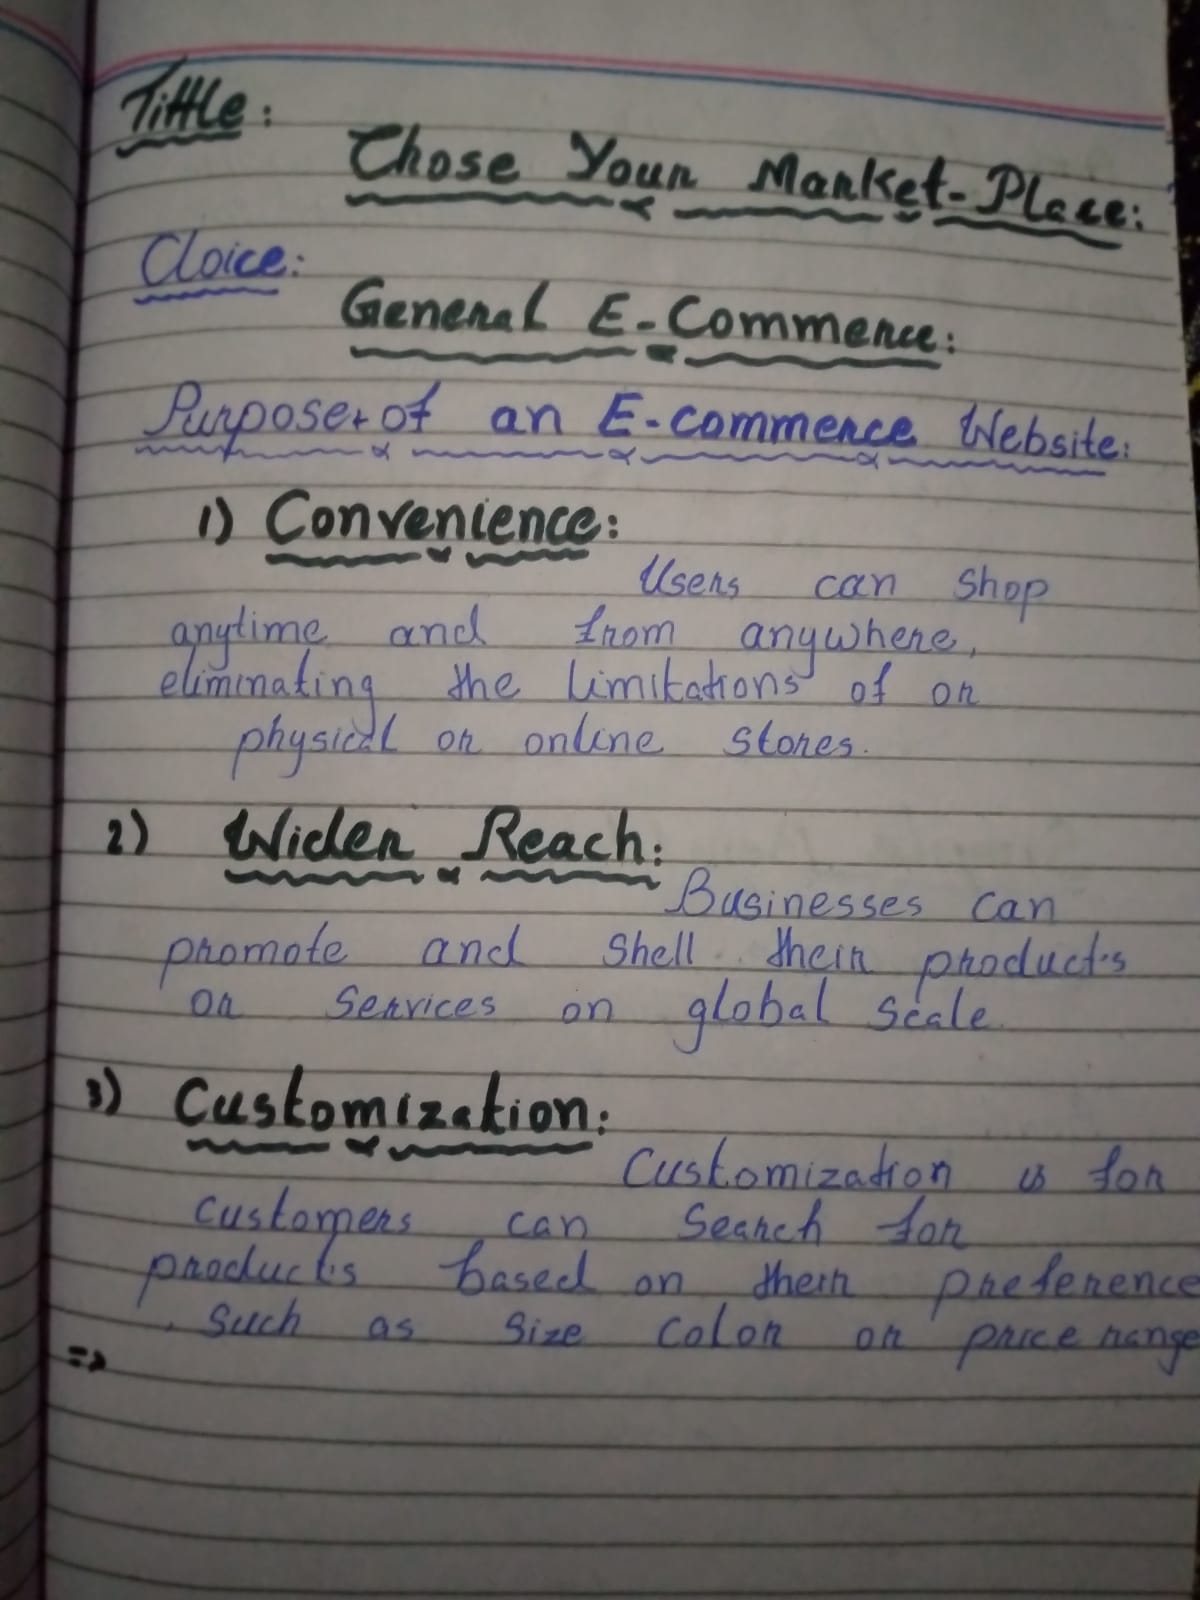 Tittle:
Chose Your Market-Place:
Cloice:
General E-Commerce:
Purpose of an E-commerce Website:
1) Convenience:
Users can shop
anytime and from anywhere,
eliminating the limitations of or
physical or online stores.
2) Wider Reach:
Businesses can
promote and Shell their products
or Services on global Scale
3) Customization:
Customization is for
Customers can Search for
products based on their preference
, Such as Size Color or price range
=>